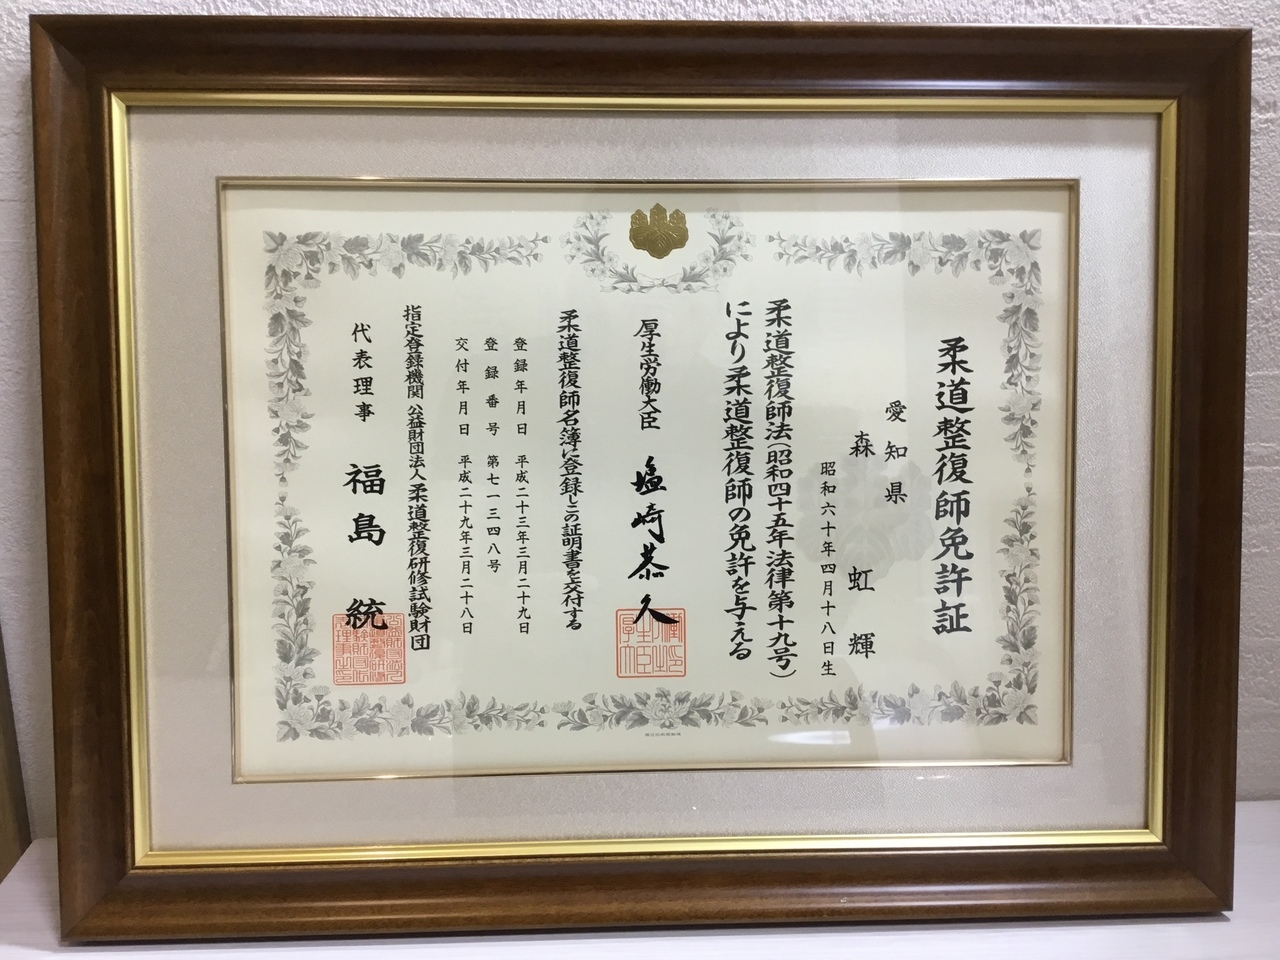 柔道整復師免許証
愛知県
森 虹輝
昭和六十年四月十八日生
柔道整復師法(昭和四十五年法律第十九号)
により柔道整復師の免許を与える
厚生労働大臣 塩崎恭久
柔道整復師名簿に登録しこの証明書を交付する
登録年月日 平成二十三年三月二十九日
登録番号 第七一三四八号
交付年月日 平成二十九年三月二十八日
指定登録機関 公益財団法人 柔道整復研修試験財団
代表理事 福島 統